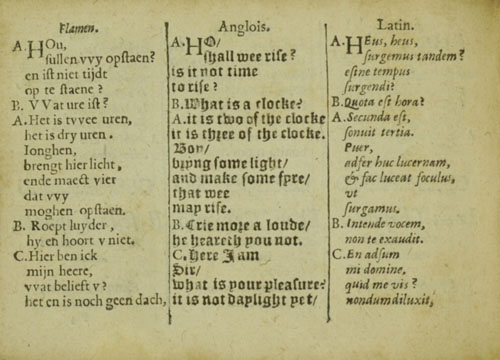 Flamen.
A. HOu,
sullen vvy opstaen?
en ist niet tijdt
op te staene?
B. VVat ure ist?
A. Het is tvvee uren,
het is dry uren.
Ionghen,
brengt hier licht,
ende maect vier
dat vvy
moghen opstaen.
B. Roept luyder,
hy en hoort v niet.
C. Hier ben ick
mijn heere,
vvat belieft v?
het en is noch geen dach,
Anglois.
A. HO/
shall wee rise?
is it not time
to rise?
B. What is a clocke?
A. it is two of the clocke
it is three of the clocke.
Boy/
bring some light/
and make some fyre/
that wee
may rise.
B. Crie more a loude/
he heareth you not.
C. Here I am
Sir/
what is your pleasure?
it is not daylight yet/
Latin.
A. HEus, heus,
surgemus tandem?
estne tempus
surgendi?
B. Quota est hora?
A. Secunda est,
sonuit tertia.
Puer,
adfer huc lucernam,
& fac luceat foculus,
vt
surgamus.
B. Intende vocem,
non te exaudit.
C. En adsum
mi domine,
quid me vis?
nondum diluxit,